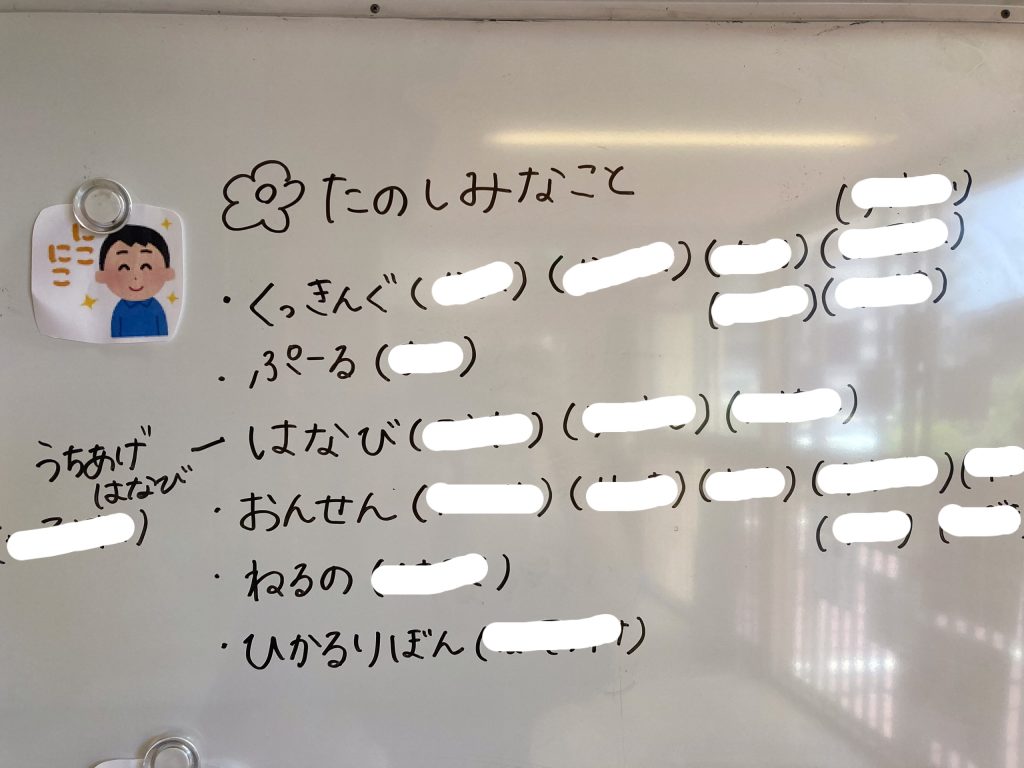 にこにこ
たのしみなこと
・くっきんぐ ( ) ( ) ( ) ( ) ( )
( ) ( )
・ぷーる ( )
ー はなび ( ) ( ) ( )
うちあげ
はなび
( )
・おんせん ( ) ( ) ( ) ( ) (
( ) (
・ねるの ( )
・ひかるりぼん ( )